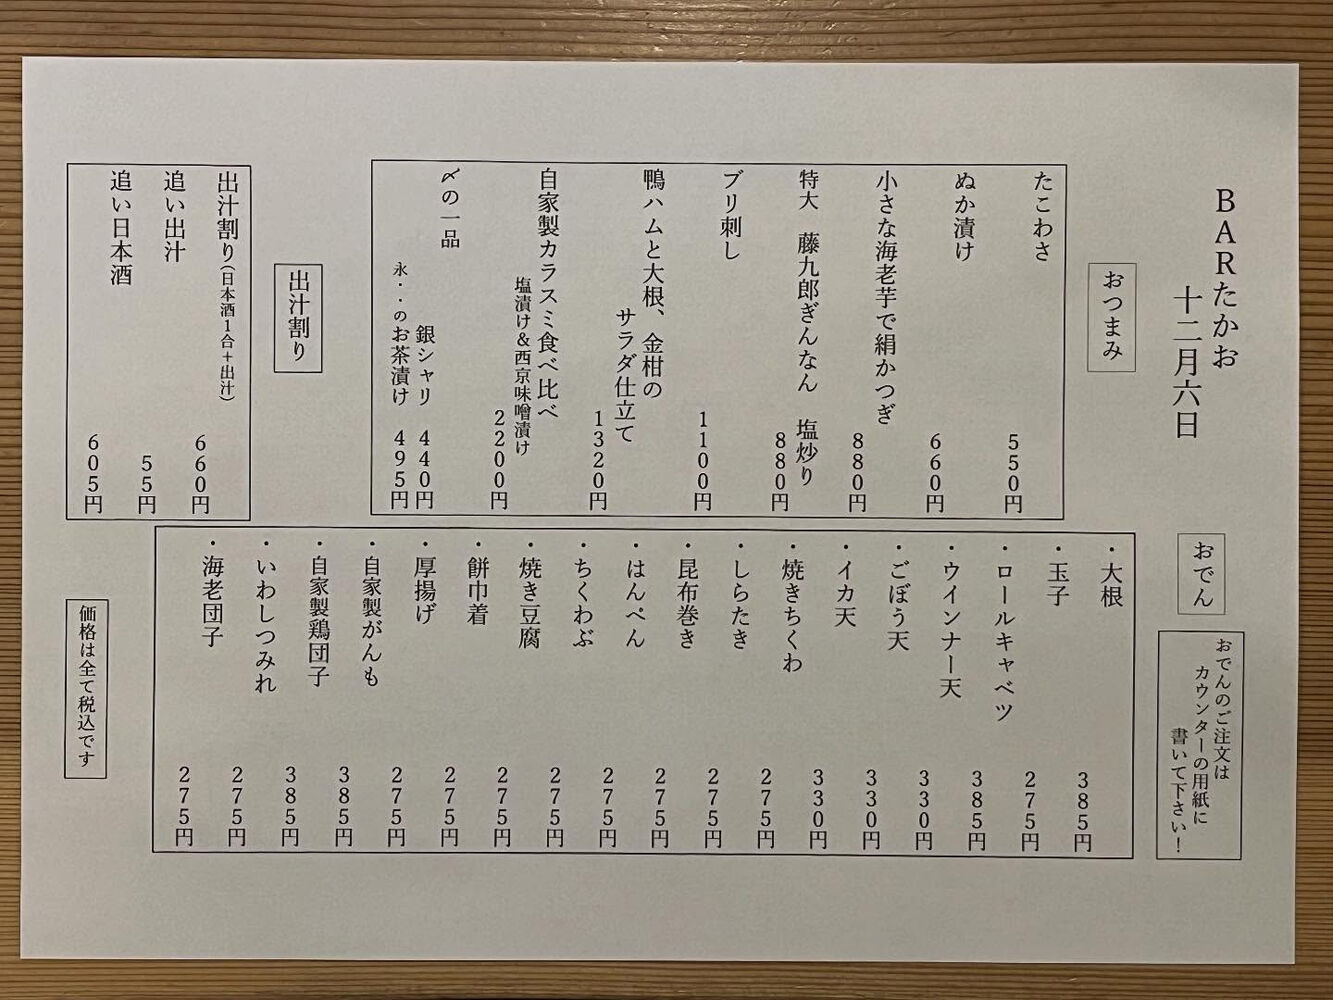 BARたかお
十二月六日
おつまみ
たこわさ
550円
ぬか漬け
660円
小さな海老芋で絹かつぎ
880円
特大 藤九郎ぎんなん 塩炒り
880円
ブリ刺し
1100円
鴨ハムと大根、金柑の
サラダ仕立て
1320円
自家製カラスミ食べ比べ
塩漬け＆西京味噌漬け
2200円
〆の一品
銀シャリ 440円
永・・のお茶漬け 495円
出汁割り
出汁割り（日本酒1合＋出汁）
660円
追い出汁
55円
追い日本酒
605円
おでん
おでんのご注文は
カウンターの用紙に
書いて下さい！
・大根 385円
・玉子 275円
・ロールキャベツ 385円
・ウインナー天 330円
・ごぼう天 330円
・イカ天 330円
・焼きちくわ 275円
・しらたき 275円
・昆布巻き 275円
・はんぺん 275円
・ちくわぶ 275円
・焼き豆腐 275円
・餅巾着 275円
・厚揚げ 275円
・自家製がんも 385円
・自家製鶏団子 385円
・いわしつみれ 275円
・海老団子 275円
価格は全て税込です